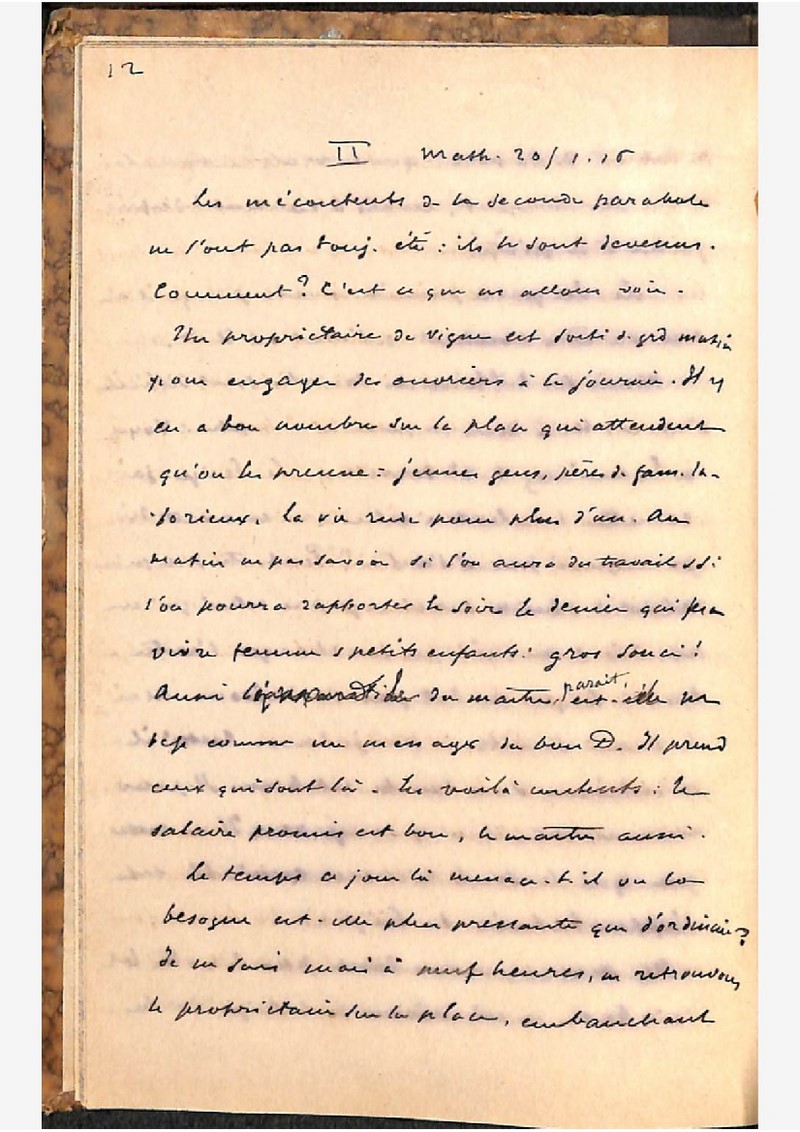 12
II Math. 20/1.16
Les mécontents de la seconde parabole
ne l'ont pas touj. été : ils le sont devenus.
Comment ? C'est ce que ns allons voir.
Un propriétaire de vigne est sorti de grd matin
pour engager des ouvriers à la journée. Il y
en a bon nombre sur la place qui attendent
qu'on les prenne : jeunes gens, pères de fam. la-
borieux. La vie rude pour plus d'un. Au
matin ne pas savoir si l'on aura du travail s si
l'on pourra rapporter le soir le denier qui fera
vivre femme s petits enfants : gros souci !
Aussi du maître paraît est-elle
comme un message du bon D. Il prend
ceux qui sont là. Les voilà contents : le
salaire promis est bon, le maître aussi.
Le temps ce jour là menace-t-il ou la
besogne est-elle plus pressante que d'ordinaire ?
Je ne sais mais à neuf heures, ns retrouvons
le propriétaire sur la place, embauchant